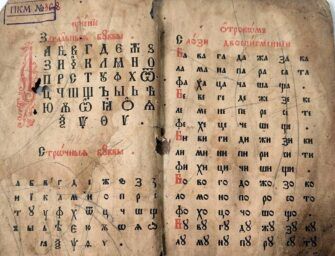 ПКМ №
бꙋквы
А Б В Г Д Е Ж Ѕ
З И К Л М Н О
П Р С Т У Ф Х Ѿ
Ц Ч Ш Щ Ъ Ы Ь Ѣ
Ѯ Ѱ Ѳ Ѵ
Строчныѧ бꙋквы
а б в г д е ж ѕ з
и і к л м н о п р
т ꙋ у ф х ѿ ц ч ш
Отрокѡмъ
Слози двописменнїи
Ба ва га да жа за ка
ла ма на па ра са та
фа ха ца ча ша ща
Бе ве ге де же зе ке
ле ме не пе ре се те
фе хе це че ше ще
Би ви ги ди жи зи ки
ли ми ни пи ри си ти
фи хи ци чи ши щи
Бо во го до жо зо ко
ло мо но по ро со то
фо хо цо чо шо що
Бꙋ вꙋ гꙋ дꙋ жꙋ зꙋ кꙋ
лꙋ мꙋ нꙋ пꙋ рꙋ сꙋ тꙋ